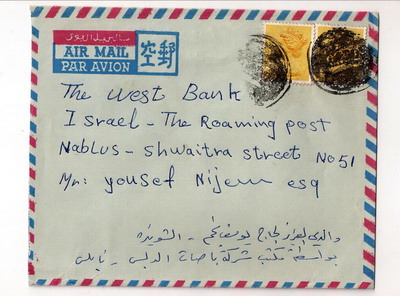 AIR MAIL
PAR AVION
空郵
The west Bank
Israel - The Roaming post
Nablus - shwaitra street No 51
Mr: yousef Nijem esq
والدي العزيز الحاج يوسف نجم - الشويتره
بواسطة مكتب شركة باصات - نابلس